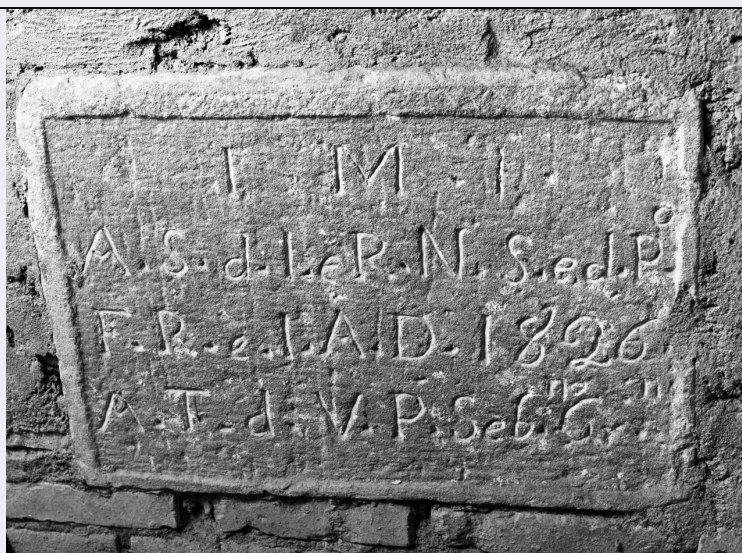 I M I
A. S. d. I. e R. N. S. e d. P.º
F. R. e. I. A. D. 1826
A. T. d. V. P. Seb.no